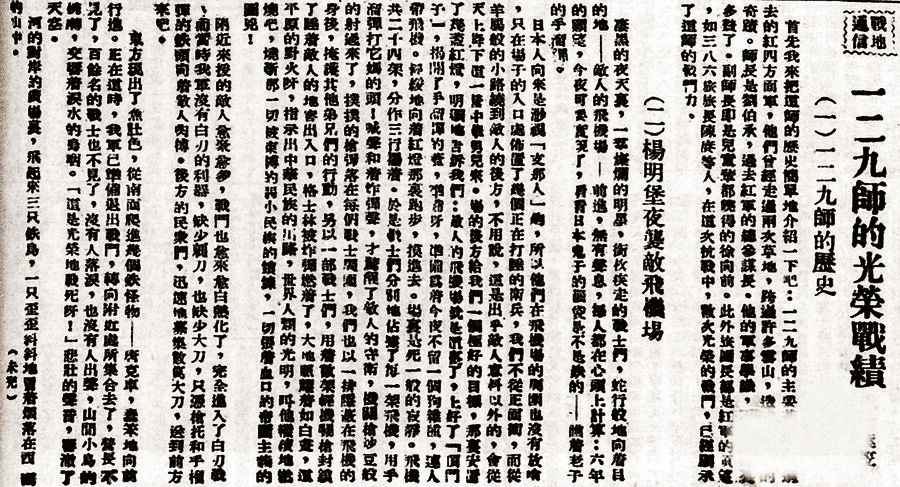 戰地通信
一二九師的光榮戰績
(一)一二九師的歷史
首先我來把這師的歷史簡單地介紹一下吧:一二九師的主要
去的紅四方面軍,他們曾經走過兩次草地,跨過許多雪山,
奇蹟。師長是劉伯承,過去紅軍的總參謀長。他的軍事學識,
多聲了。副師長即是兒童輩都曉得的徐向前。此外旅團長都是紅軍的
,如三八六旅旅長陳賡等人,在這次抗戰中,數次光榮的戰鬥,已經顯示
了這師的戰鬥力。
(二)楊明堡夜襲敵飛機場
漆黑的夜天裏,一羣燦爛的明星,銜枚疾走的戰士們,蛇行般地向着目
的地——敵人的飛機場——前進,無有聲息,每人都在心頭上計算:六年
的手溜彈。
日本人向來是渺視「支那人」的,所以他們在飛機場的周圍也沒有放哨
,只在場子的入口處佈置了幾個正在打瞌的衛兵,我們不從正面衝,而從
羊腸般的小路繞到敵人的後方,不用說,這是出乎敵人意料以外的,會從
天上降下這一營中華男兒來。場的後方給我們一個極好的目標,那裏安置
了幾盞紅燈,明顯地告訴我們:敵人的飛機場就是這裏了,上好了「頂門
帶飛機。輕緩地向着紅燈那裏跑步,摸進去。場裏是死一般的寂靜。飛機
共二十四架,分作三行擺着。於是戰士們分別地佔據了每一架飛機,用手
溜彈打它媽的頭!喊聲和着炸彈聲,才驚醒了敵人的守衛,機關槍炒豆般
的射過來了,撲撲的槍彈落在每個戰士周圍,我們也以一排隱蔽在飛機的
身後,掩護其他弟兄們的行動,另以一部戰士們,用着數架輕機關槍封鎖
了睡着敵人的地窖出入口,格士林被炸彈燃着了,大地照耀着如白晝,這
平原的野火呀,指示出中華民族的出路,世界人類的光明,叫他繼續地燃
燒吧,燒斷那一切被束縛的弱小民族的鎖鍊,一切張着血口的帝國主義的
圈兒!
附近來援的敵人愈來愈多,戰鬥也愈來愈白熱化了,完全進入了白刃戰
,而當時我軍沒有白刃的利器,缺少刺刀,也缺少大刀,只憑槍托和手榴
彈的鐵頭向着敵人肉搏。後方的民衆們,迅速地集集數萬大刀,送到前方
來吧。
東方現出了魚肚色,從南面爬進幾個鐵怪物——唐克車,蠢笨地向前
行進。正在這時,我軍已準備退出戰鬥,轉向附近處所集合去了,營長不
見了,百餘名的戰士也不見了,沒有人落淚,也沒有人出聲,山間小鳥的
曉啼,交響着淚水的嗚咽。「這是光榮地戰死呀!」悲壯的聲音,響澈了
天空。
河的對岸的廣場裏,飛起來三只鐵鳥,一只歪歪斜斜地冒着烟落在西
的山中。
(未完)